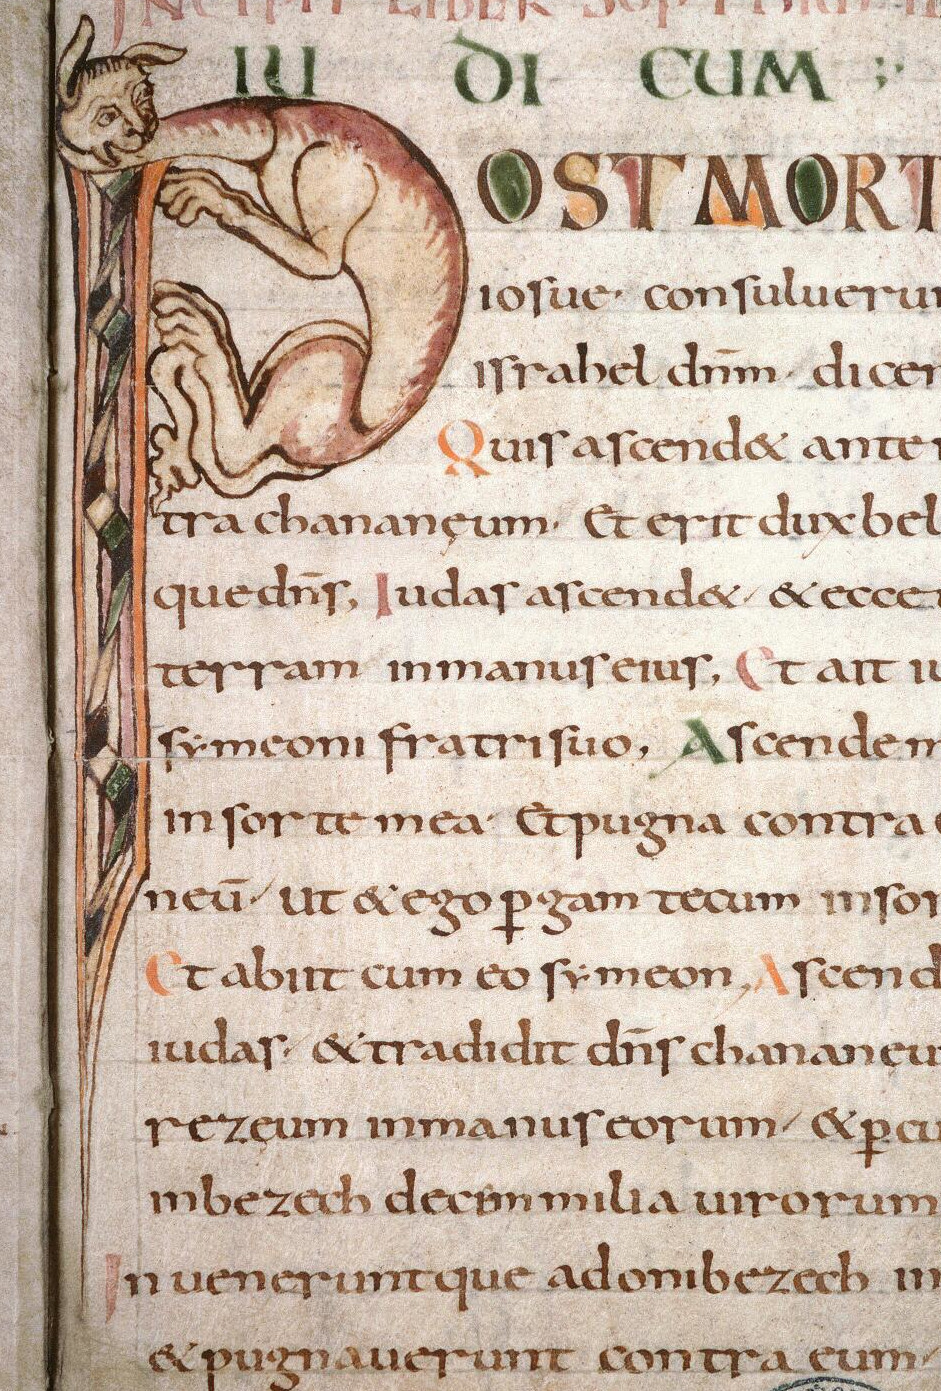 INCIPIT LIBER SOPTHIM
IU DI CUM ;
POST MORT
iosue· consuluerun
israhel dn̄m· dicen
Quis ascend& ante n
tra chananęum· Et erit dux bel
que dn̄s, Iudas ascend&· & ecce
terram in manus eius, Et ait iu
symeoni fratri suo, Ascende m
in sorte mea· Et pugna contra
neū· ut & ego ꝑgam tecum in sor
Et abiit cum eo symeon, Ascend
iudas· & tradidit dn̄s chananęu
rezęum in manus eorum· & ꝑcu
in bezech decim milia uirorum
Inueneruntque adonibezech in
& pugnauerunt contra eum·